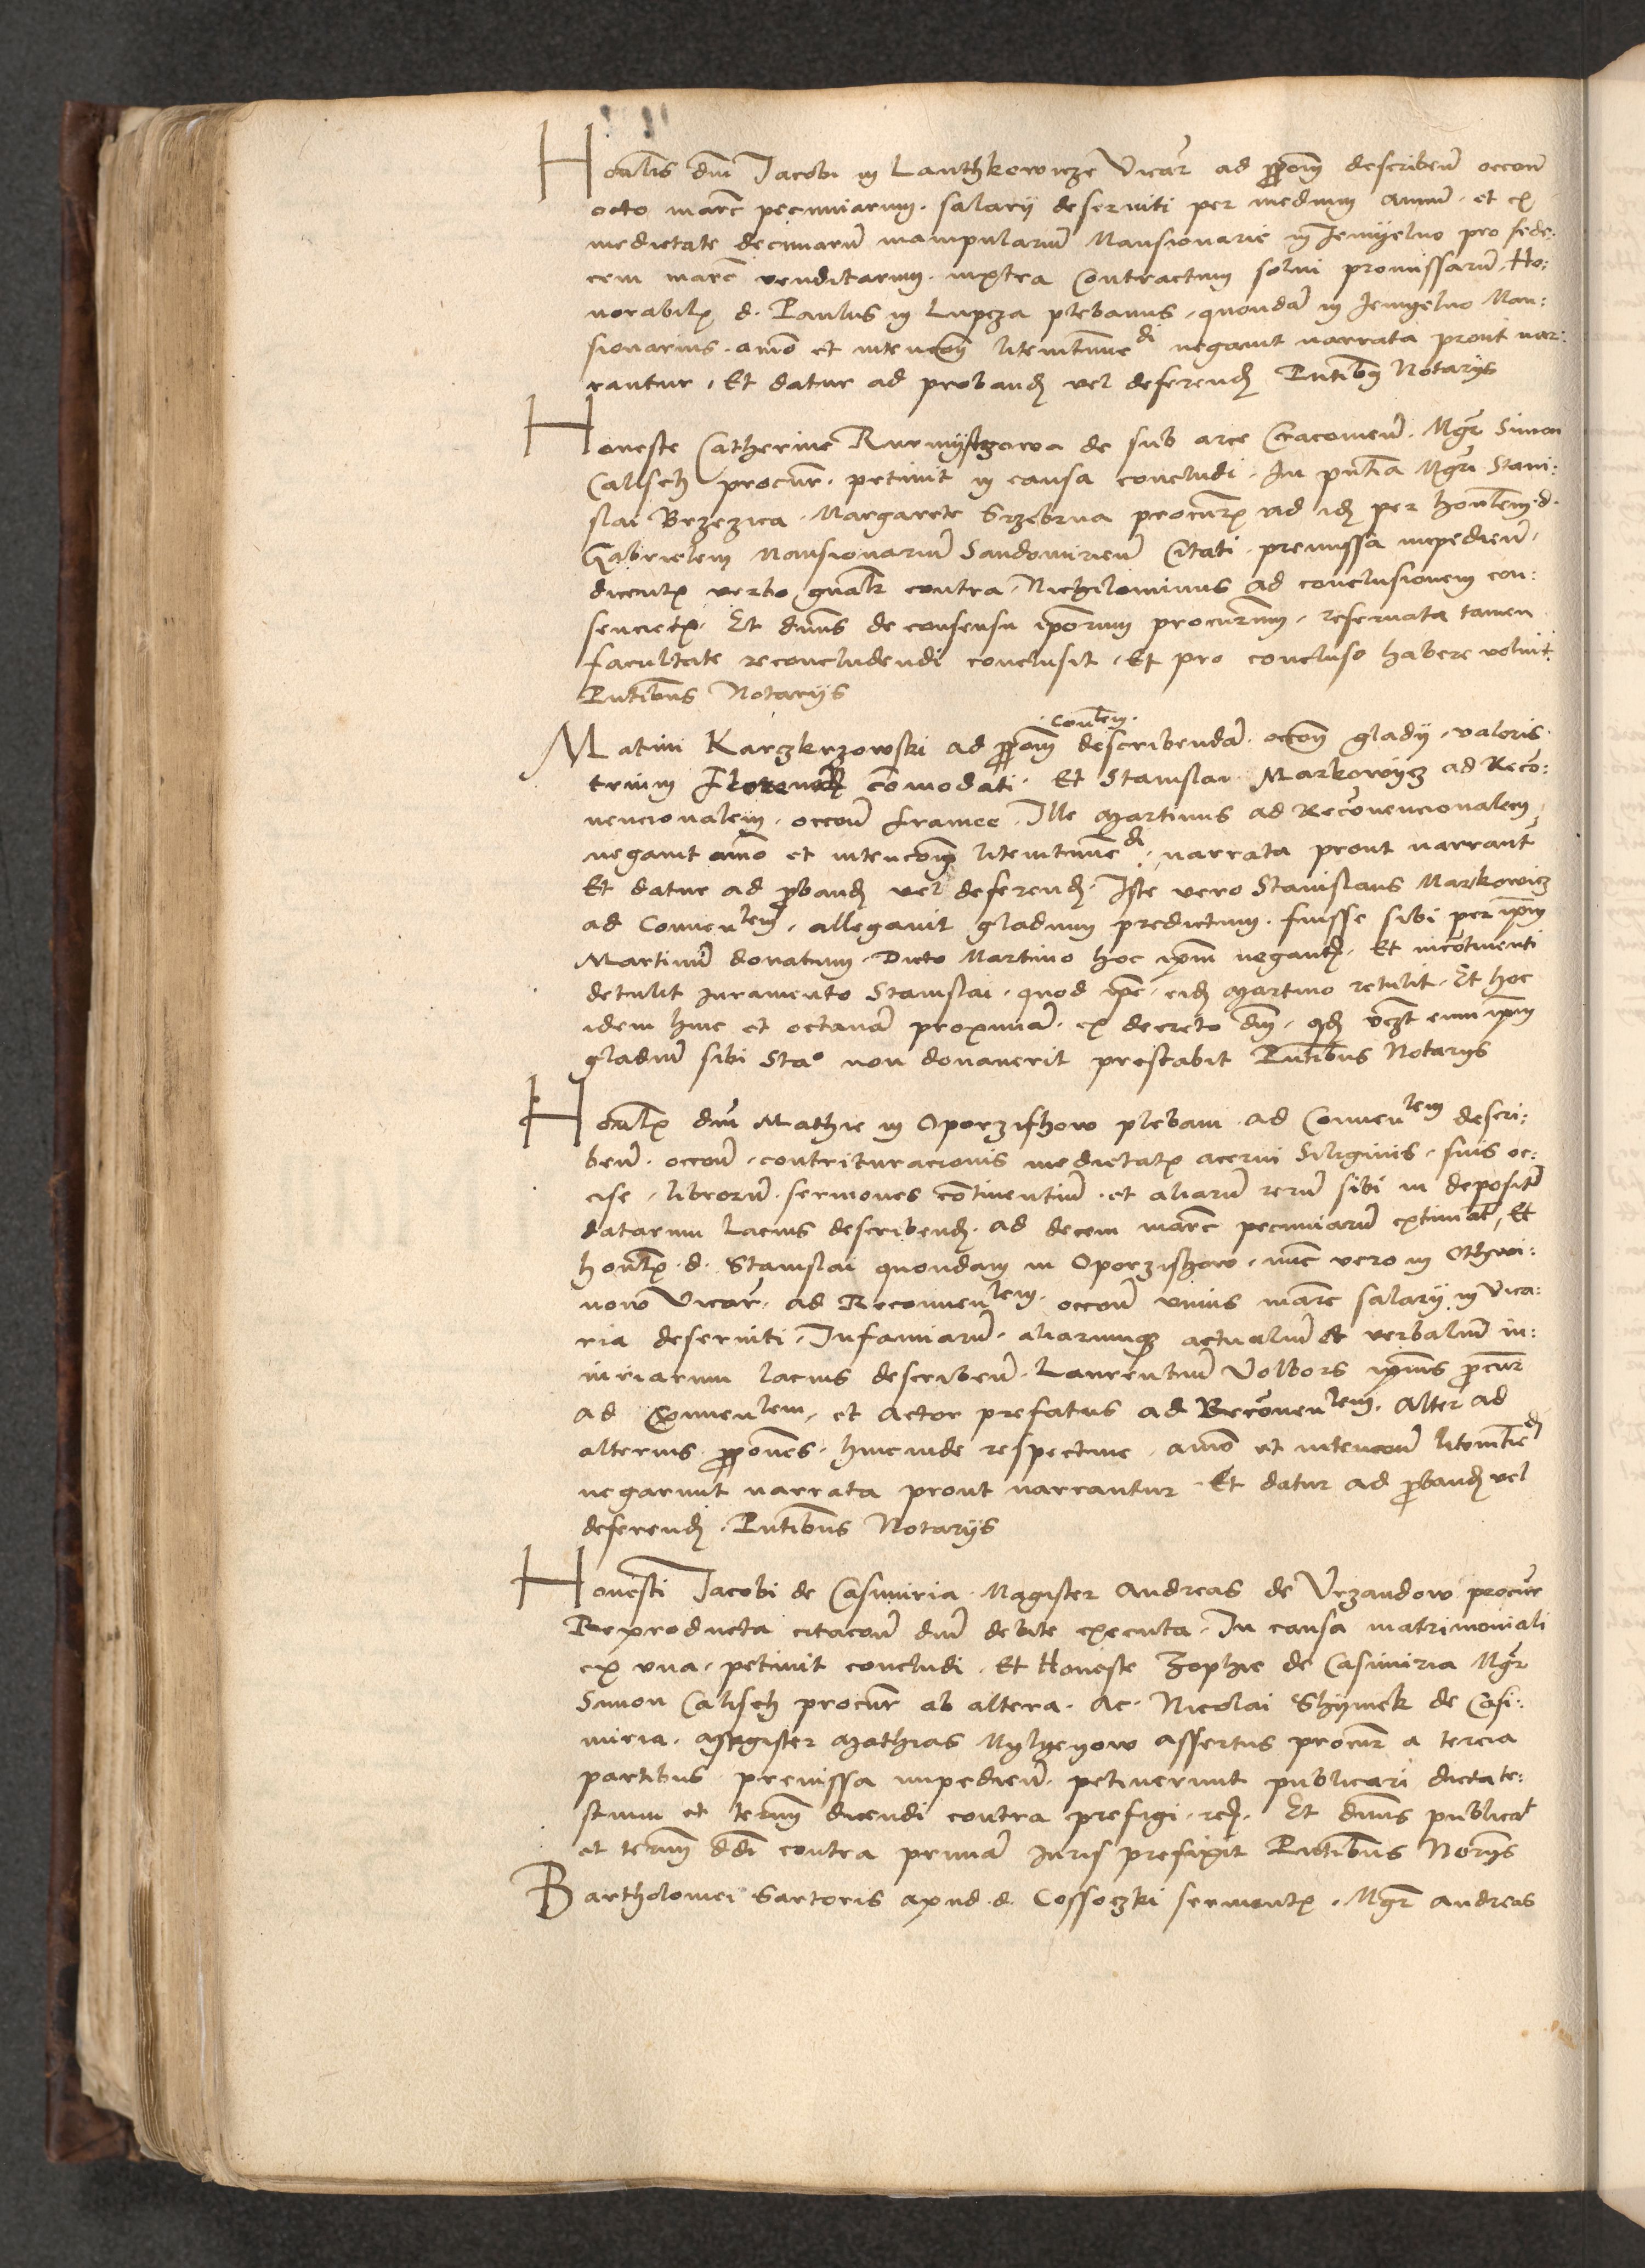 Honlis dni Jacobi in Lanthkowicze Vicar ad ppoem describen occone
octo marc pecuniarum . salarij deserviti per medium annum . et ex
medietate decimarum manipularium Mansionarie in Jemyelno pro sede:
cem marc venditarum . iuxta Contractum solvi promissarum . Ho:
norabilis d. Paulus in Lupcza plebanus , quondam in Jemyelno Man:
sionarius . animo et intencone litemcontestandi negavit narrata prout nar:
rantur , Et datur ad proband vel deferend Pntibus Notarijs
Honeste Catherine de sub arce Cracovien . Mgr Simon
Calisch procur . petivit in causa concludi . In pntia Mgri Stani:
slai Brzezica . Margarete Srzebrna procuris ad id per honlem d.
Gabrielem Mansionarium Sandomirien Citati . premissa impedien ,
dicentis verbo gnali contra . Nichilominus ad conclusionem con:
sencietis . Et dnus de consensu ipsorum procurum , reservata tamen
facultate reconcludendi conclusit , Et pro concluso habere voluit
Pntibus Notarijs
Matini Karczkrzowski ad ppoem . conlem . describendam . occone gladij . valoris
trium Floren comodati . Et Stanislai Markowycz ad Reco:
nvencionalem . occone framee . Ille Martinus ad Reconvencionalem ,
negavit animo et intencone litemcontestandi , narrata prout narrant
Et datur ad proband vel deferend . Iste vero Stanislaus Markowicz
ad Convenlem , allegavit gladium predictum . fuisse sibi per ipm
Martinum donatum . Dicto Martino hoc ipm negante . Et incontinenti
detulit iuramento Stanislai . quod ipe , eid Martino retulit . Et hoc
idem hinc et octavam proximam . ex decreto dni , qd eum ipm
gladium sibi Stao non donaverit prestabit Pntibus Notarijs
Honlis dni Mathie in Oporzishow plebani ad Convenlem descri:
ben . occone . contrituracionis medietatis acervi Siliginis . suis oc:
cise , librorum . sermones continentium . et aliarum rerum sibi in depositum
datarum lacius describend . ad decem marc pecuniarum extimat , Et
honlis d. Stanislai quondam in Oporzishow , nunc vero in Othwi:
now Vicar . ad Reconvenlem . occone unius marc salarij in vica:
ria deserviti . Infamiarum . aliarumque actualium et verbalium in:
iuriarum lacius describen . Laurentium Volbors ipsius procur
ad Convenlem , et Actor prefatus ad Reconvenlem . Alter ad
alterius ppones . hincinde respective . animo et intencone litemcontestandi
negarunt narrata prout narrantur . Et datur ad proband vel
deferend . Pntibus Notarijs
Honesti Jacobi de Casimiria . Magister Andreas de Vrzandow procur
Reproducta citacone dni debite executa . In causa matrimoniali
ex una , petivit concludi . Et Honeste Zophie de Casimiria Mgr
Simon Calisch procur ab altera . Ac . Nicolai Shymek de Casi:
miria . Magister Mathias Mylyeyow assertus procur a tercia
partibus premissa impedien . petiverunt publicari dicta te:
stium et termin dicendi contra prefigi . . Et dnus publicat
et termin ddi contra primam Juris prefixit Pntibus Noriis
Bartholomei Sartoris apud d. Cossoczki servientis . Mgr Andreas